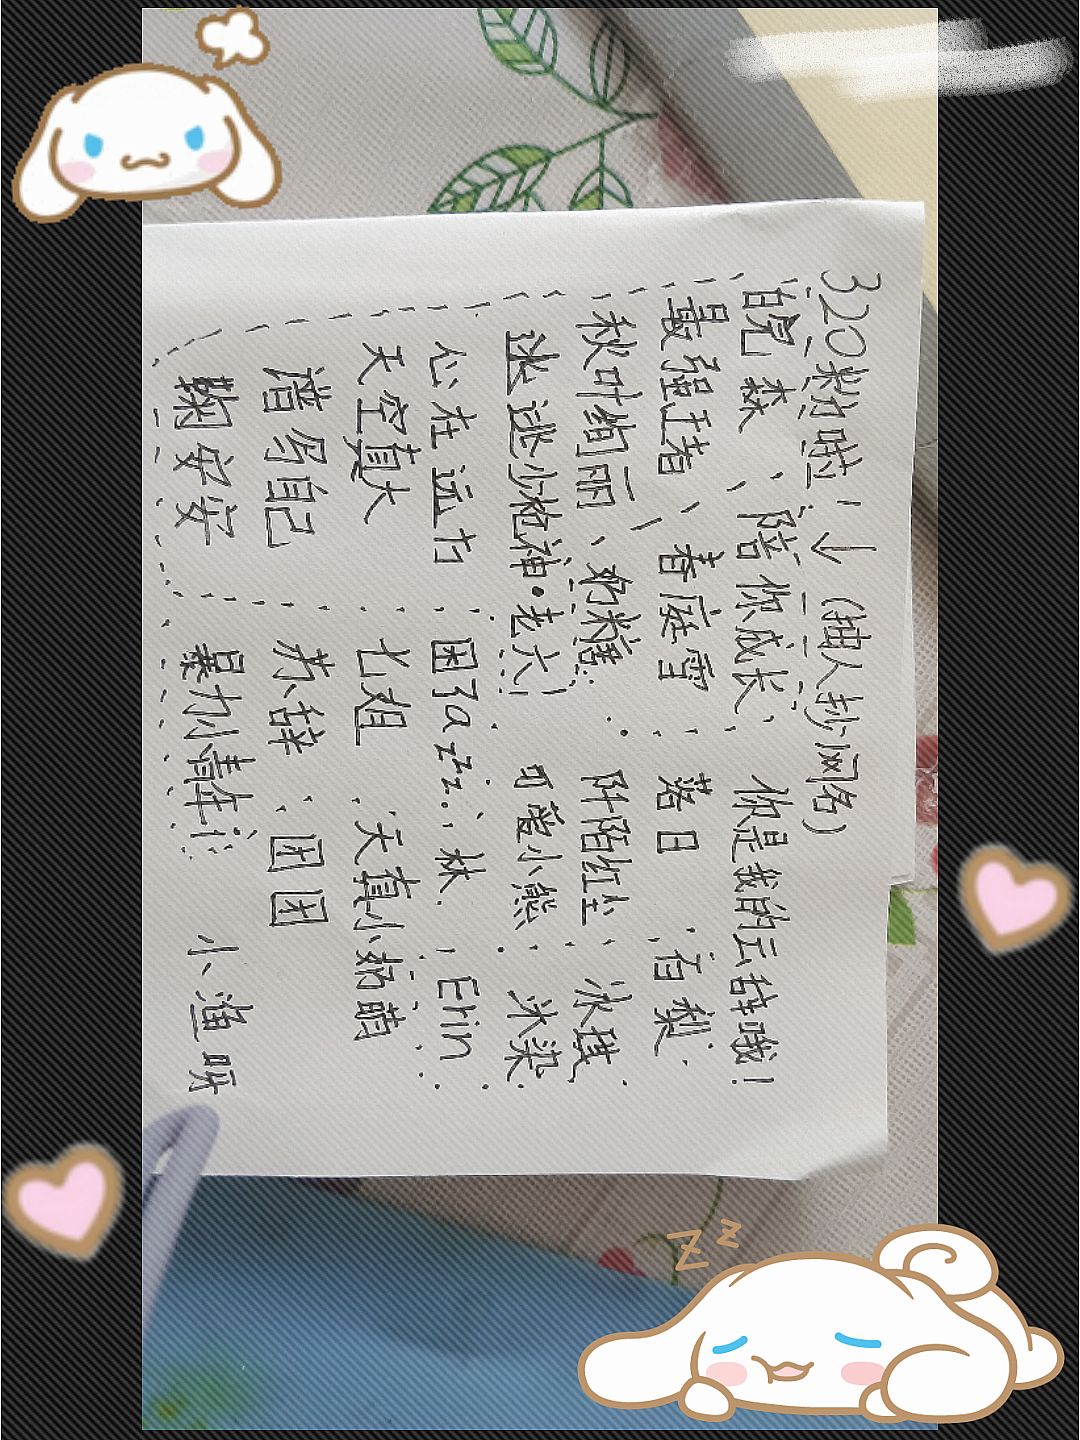 320粉啦!↓(抽人抄网名)
晚森、陪你成长,你是我的云辞哦!
最强王者、春庭雪,落日,宿梨.
秋叶绚丽、奶糖.阡陌红尘,冰璞,
迷逃少枪神·老六,可爱小熊,沐染.
心在远方 困了azzz.,林.,Erin
天空真大 七姐,天真小奶萌
谱写自己 苏辞、团团
鞠安安 暴力小青年 小渔呀
z z